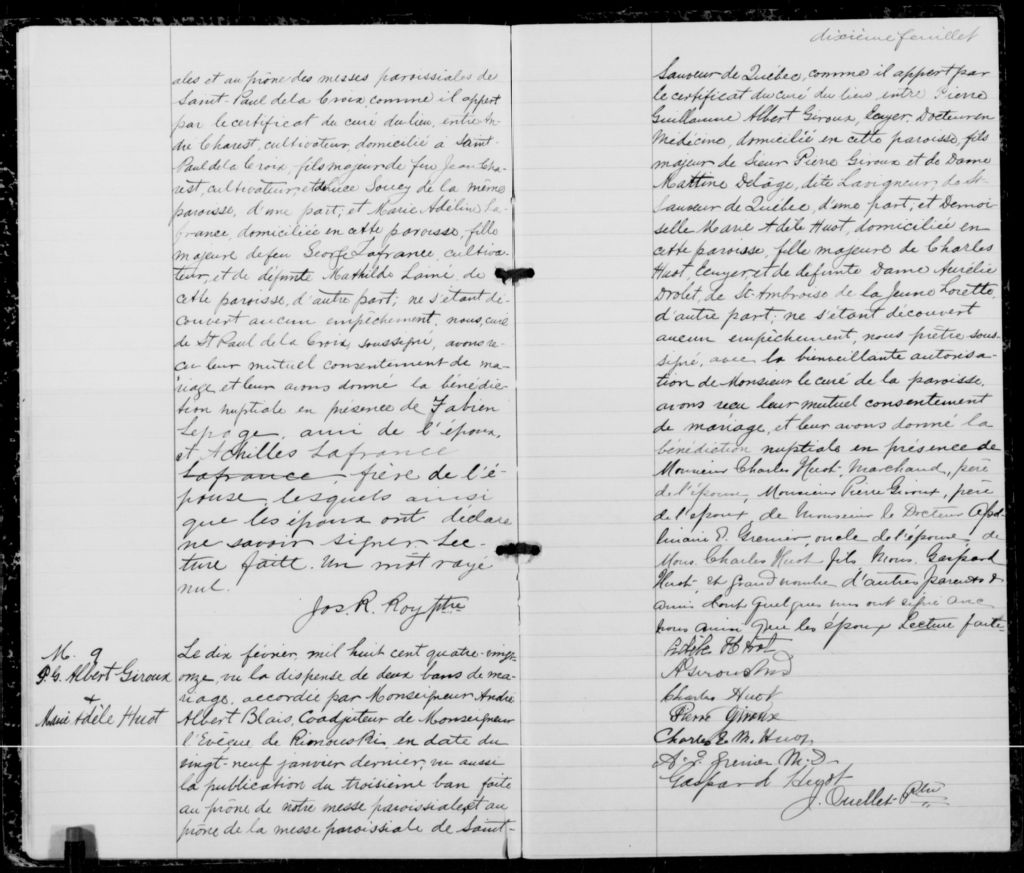 ales et au prône des messes paroissiales de
Saint Paul de la Croix comme il appert
par le certificat du curé du lieu, entre An-
dré Charest, cultivateur, domicilié à Saint
Paul de la Croix, fils majeur de feu Jean Cha-
rest, cultivateur, et de Luce Soucy de la même
paroisse, d'une part; et Marie Adéline La-
france, domiciliée en cette paroisse, fille
majeure de feu George Lafrance, cultiva-
teur, et de défunte Mathilde Lainé, de
cette paroisse, d'autre part; ne s'étant dé-
couvert aucun empêchement, nous, curé
de St Paul de la Croix soussigné, avons re-
çu leur mutuel consentement de ma-
riage et leur avons donné la bénédic-
tion nuptiale en présence de Fabien
Lepage, ami de l'époux,
et Achilles Lafrance
Lafrance, frère de l'é-
pouse, lesquels ainsi
que les époux ont déclaré
ne savoir signer. Lec-
ture faite. Un mot rayé
nul.
Jos R. Roy ptre
M. 9
P. G. Albert Giroux
+
Marie Adèle Huot
Le dix février, mil huit cent quatre-vingt
onze, vu la dispense de deux bans de ma-
riage accordée par Monseigneur André
Albert Blais, Coadjuteur de Monseigneur
l'Evêque de Rimouski, en date du
vingt neuf janvier dernier, vu aussi
la publication du troisième ban faite
au prône de notre messe paroissiale et au
prône de la messe paroissiale de Saint-
dixième feuillet
Sauveur de Québec, comme il appert par
le certificat du curé du lieu, entre Pierre
Guillaume Albert Giroux, Ecuyer, Docteur en
Médecine, domicilié en cette paroisse, fils
majeur de Sieur Pierre Giroux et de Dame
Mattine Delâge, dite Lavigneur, de St-
Sauveur de Québec, d'une part, et Demoi-
selle Marie Adèle Huot, domiciliée en
cette paroisse, fille majeure de Charles
Huot, Ecuyer et de défunte Dame Aurélie
Drolet, de St-Ambroise de la Jeune Lorette,
d'autre part; ne s'étant découvert
aucun empêchement, nous prêtre sous-
signé, avec la bienveillante autorisa-
tion de Monsieur le curé de la paroisse,
avons reçu leur mutuel consentement
de mariage, et leur avons donné la
bénédiction nuptiale en présence de
Monsieur Charles Huot, Marchand, père
de l'épouse, Monsieur Pierre Giroux, père
de l'époux de Monsieur le Docteur Apol-
linaire E. Grenier, oncle de l'épouse, de
Mons. Charles Huot fils Mons. Gaspard
Huot, et grand nombre d'autres parents &
amis dont quelques uns ont signé avec
nous ainsi que les époux Lecture faite
Adèle Huot
A Giroux M D
Charles Huot
Pierre Giroux
Charles E. M. Huot
A. E. Grenier M. D
Gaspard Huot
J. Ouellet Ptre